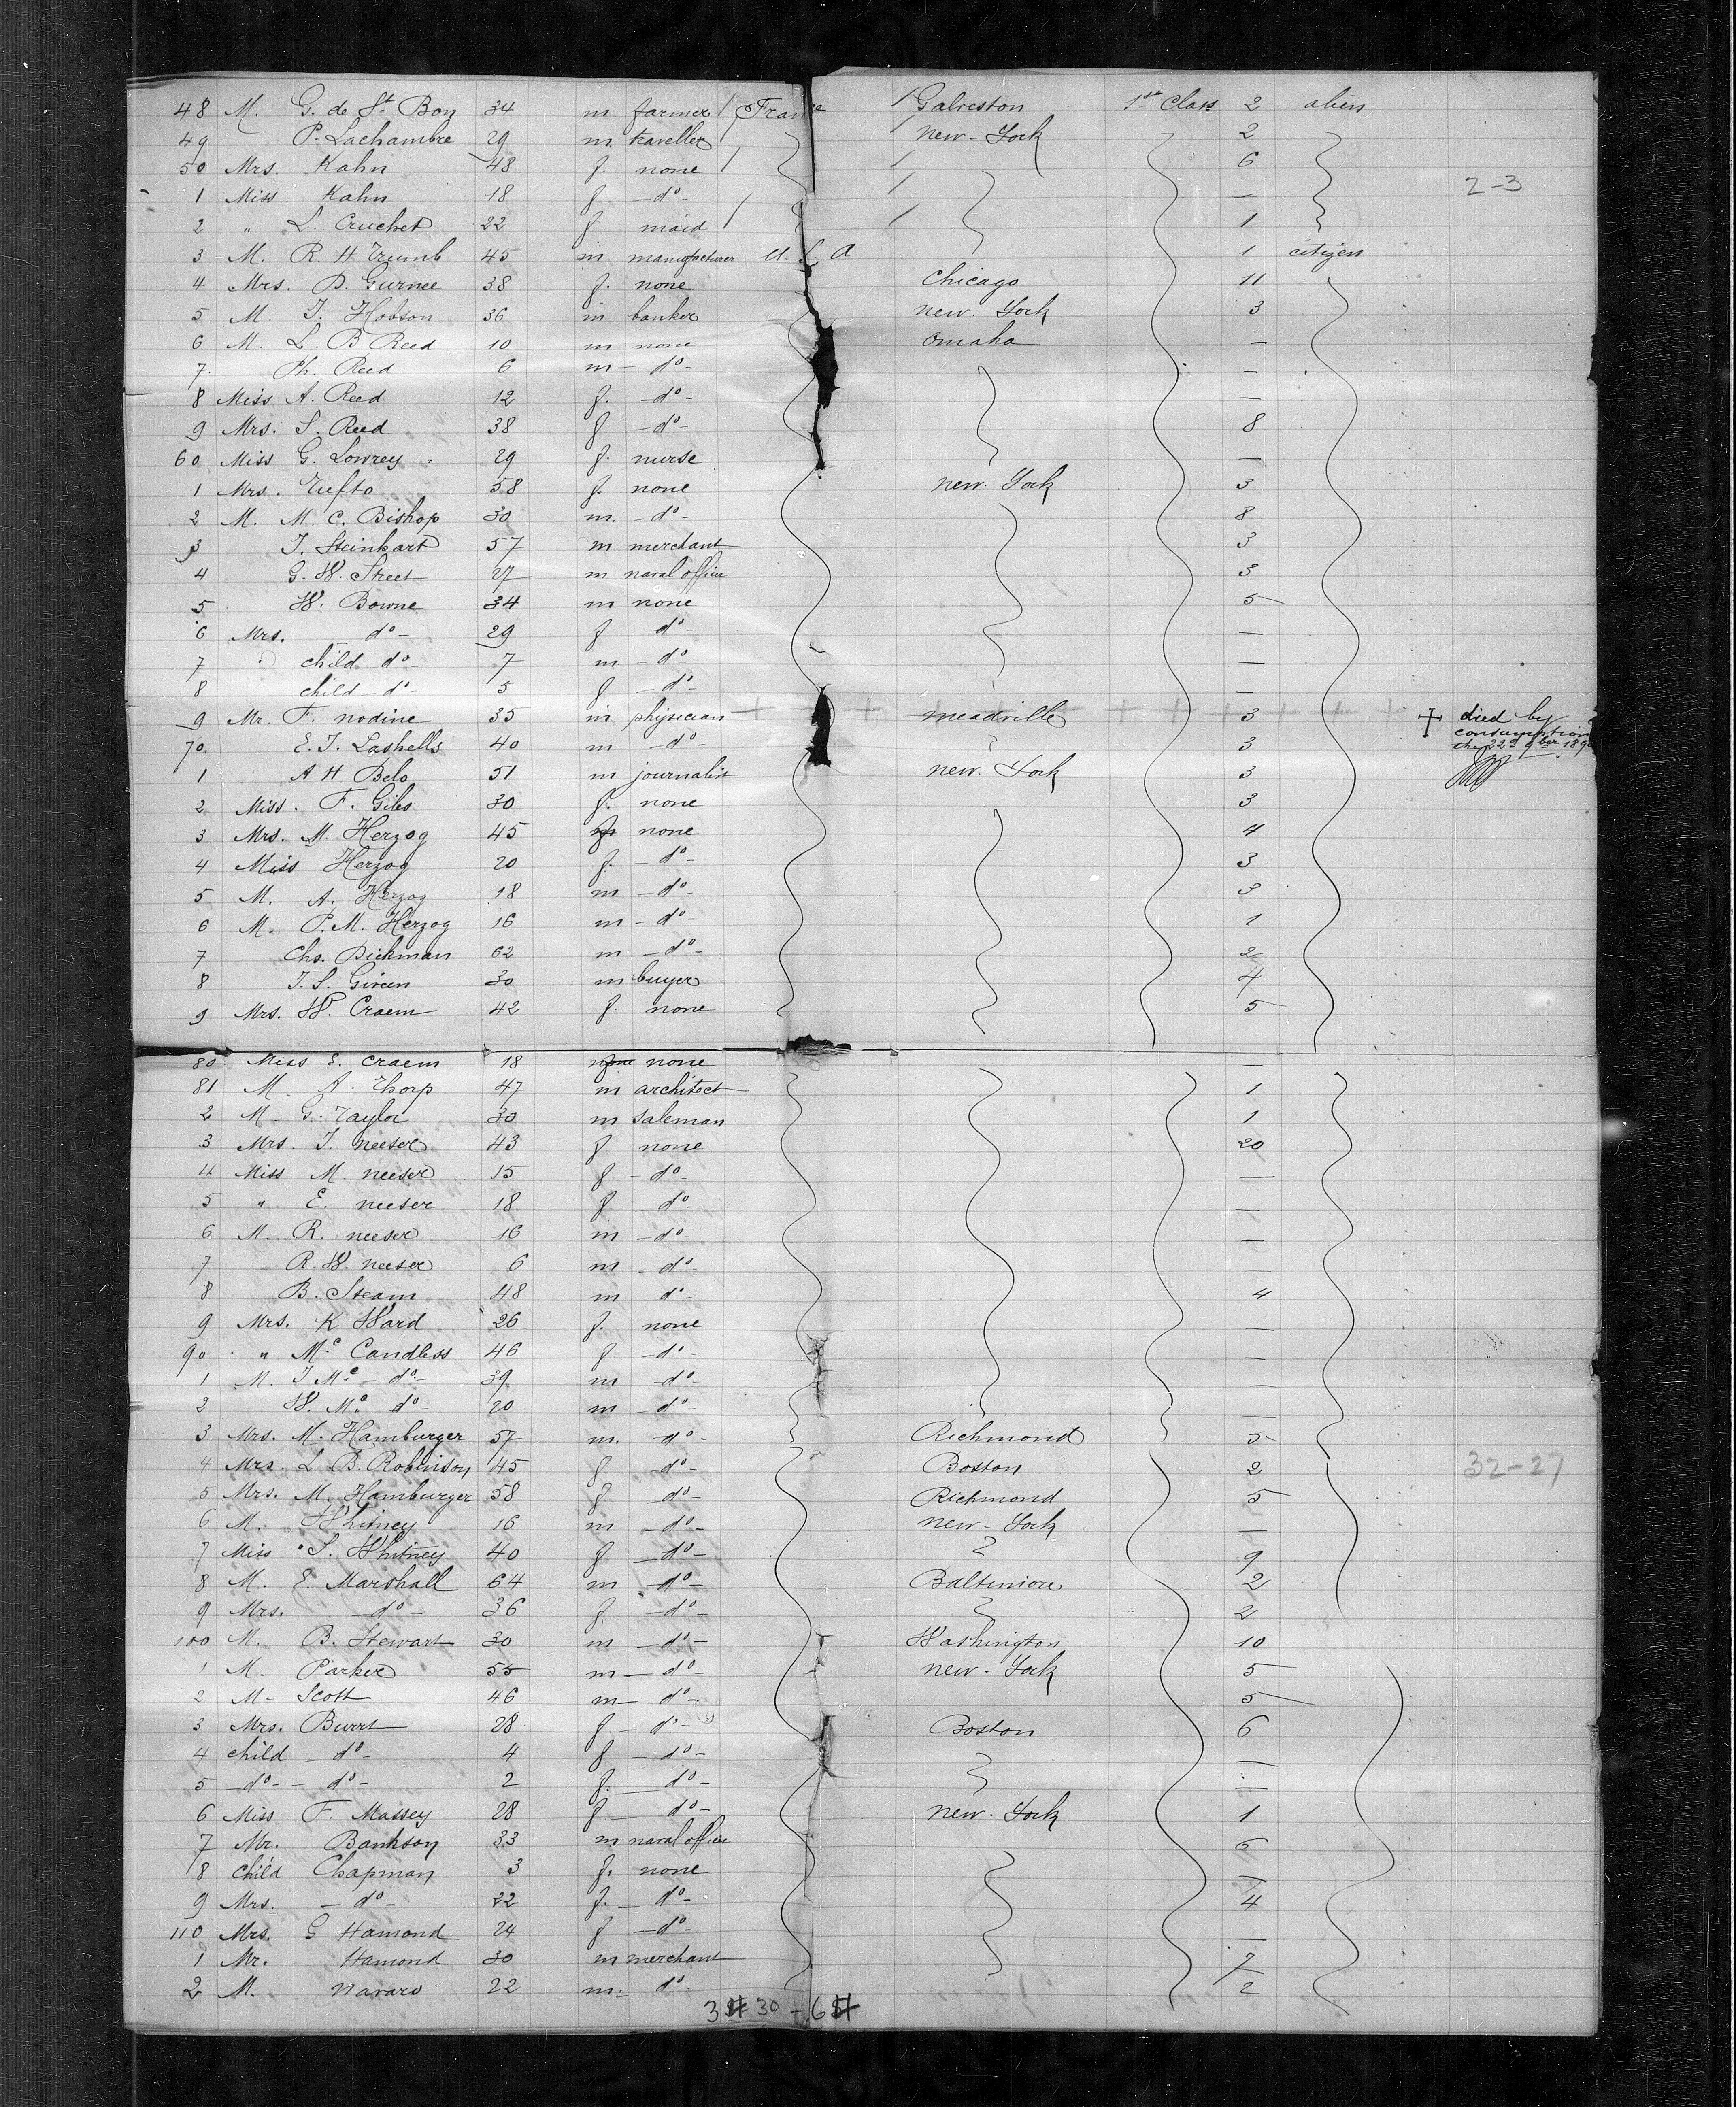 48 M. G. de St Bon 34 m farmer France Galveston 1st Class 2 alien
49 P. Lachambre 29 m traveller new-York 2
50 Mrs. Kahn 48 f. none 6
1 Miss Kahn 18 f -do- — 2-3
2 " L. Cruchet 22 f maid 1
3 M. R. H. Trumb 45 m manufacturer U. S. A 1 citizen
4 Mrs. D. Gurnee 38 f. none Chicago 11
5 M. J. Hobson 36 m banker new. York 3
6 M. L. B Reed 10 m none Omaha —
7 Ph. Reed 6 m -do- —
8 Miss A. Reed 12 f. -do- —
9 Mrs. S. Reed 38 f -do- 8
60 Miss G. Lowrey 29 f. nurse —
1 Mrs. Tufto 58 f. none new. York 3
2 M. M. C. Bishop 30 m. -do- 8
3 J. Steinhart 57 m merchant 3
4 G. W. Street 27 m naval officer 3
5 W. Bowne 34 m none 5
6 Mrs. do- 29 f do- —
7 child do- 7 m -do —
8 child do- 5 f -do- —
9 Mr. F. nodine 35 m physician meadville 3 died by consumption the 22d 9ber 189
70 E. J. Lashells 40 m -do- 3
1 A H Belo 51 m journalist new. York 3
2 Miss. F. Giles 30 f. none 3
3 Mrs. M. Herzog 45 f none 4
4 Miss Herzog 20 f. -do- 3
5 M. A. Herzog 18 m -do- 3
6 M. P. M. Herzog 16 m -do- 1
7 Chs. Dickman 62 m -do- 2
8 J. S. Green 30 m buyer 4
9 Mrs. W. Craem 42 f. none 5
80 Miss E. Craem 18 none —
81 M. A. Thorp 47 m architect 1
2 M G. Taylor 30 m saleman 1
3 Mrs. J. neeser 43 f none 20
4 Miss M. neeser 15 f -do- —
5 " E. neeser 18 f do —
6 M. R. neeser 16 m -do- —
7 R. W. neeser 6 m -do- —
8 B. Steam 48 m do- 4
9 Mrs. K Ward 26 f. none —
90 " Mc Candless 46 f -do- —
1 M. J Mc -do- 39 m -do- —
2 W. Mc do- 20 m -do- —
3 Mrs. M. Hamburger 57 m. -do- Richmond 5
4 Mrs. L. B. Robinson 45 f -do- Boston 2 32-27
5 Mrs. M. Hamburger 58 f. -do- Richmond 5
6 M. Whitney 16 m -do- new-York —
7 Miss S. Whitney 40 f -do- 9
8 M. E. Marshall 64 m -do- Baltimore 2
9 Mrs. -do- 36 f. -do- 2
100 M. B. Stewart 30 m -do- Washington 10
1 M. Parker 55 m -do- new-York 5
2 M. Scott 46 m -do- 5
3 Mrs. Burrt 28 f -do- Boston 6
4 child -do- 4 f -do- —
5 -do- -do- 2 f. -do- —
6 Miss F. Massey 28 f do- new. York 1
7 Mr. Bankson 33 m naval officer 6
8 Child Chapman 3 f. none —
9 Mrs. -do- 22 f. -do- 4
110 Mrs. G Hamond 24 f -do- —
1 Mr. Hamond 30 m merchant 7
2 M. navaro 22 m. do 2
30 - 6